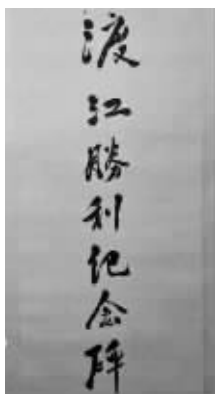 渡江勝利纪念碑